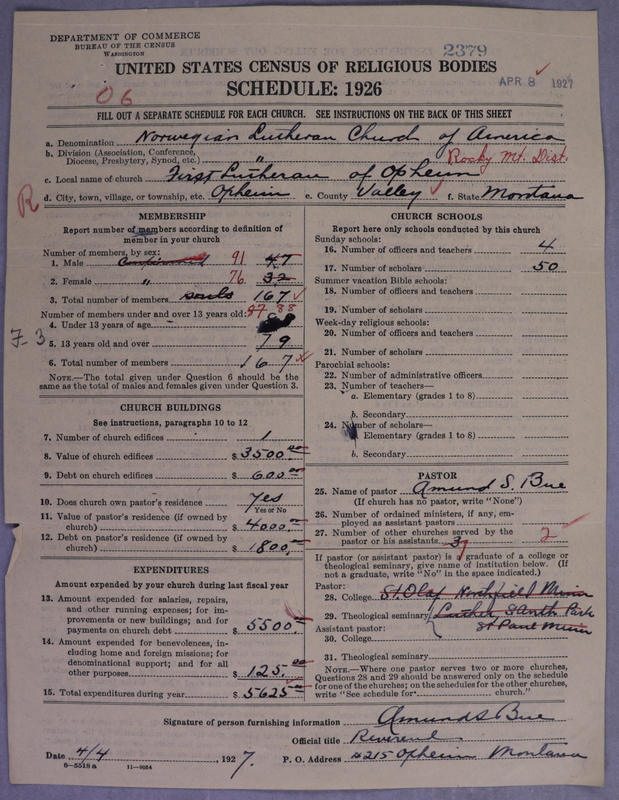 DEPARTMENT OF COMMERCE
BUREAU OF THE CENSUS
WASHINGTON
2379
UNITED STATES CENSUS OF RELIGIOUS BODIES
SCHEDULE: 1926
APR 8 1927
06
FILL OUT A SEPARATE SCHEDULE FOR EACH CHURCH. SEE INSTRUCTIONS ON THE BACK OF THIS SHEET
a. Denomination Norwegian Lutheran Church of America
b. Division (Association, Conference, Diocese, Presbytery, Synod, etc.) " Rocky Mt. Dist.
c. Local name of church First Lutheran of Opheim
R
d. City, town, village, or township, etc. Opheim e. County Valley f. State Montana
MEMBERSHIP
Report number of members according to definition of member in your church
Number of members, by sex:
1. Male Confirmed 91 47
2. Female " 76 32
3. Total number of members souls 167
Number of members under and over 13 years old: 88
4. Under 13 years of age
7-3
5. 13 years old and over 79
6. Total number of members 167
NOTE.—The total given under Question 6 should be the same as the total of males and females given under Question 3.
CHURCH BUILDINGS
See instructions, paragraphs 10 to 12
7. Number of church edifices 1
8. Value of church edifices $ 3500.00
9. Debt on church edifices $ 600.00
10. Does church own pastor's residence Yes
Yes or No
11. Value of pastor's residence (if owned by church) $ 4000.00
12. Debt on pastor's residence (if owned by church) $ 1800.00
EXPENDITURES
Amount expended by your church during last fiscal year
13. Amount expended for salaries, repairs, and other running expenses; for improvements or new buildings; and for payments on church debt $ 5500.
14. Amount expended for benevolences, including home and foreign missions; for denominational support; and for all other purposes $ 125.00
15. Total expenditures during year $ 5625.00
CHURCH SCHOOLS
Report here only schools conducted by this church
Sunday schools:
16. Number of officers and teachers 4
17. Number of scholars 50
Summer vacation Bible schools:
18. Number of officers and teachers
19. Number of scholars
Week-day religious schools:
20. Number of officers and teachers
21. Number of scholars
Parochial schools:
22. Number of administrative officers
23. Number of teachers—
a. Elementary (grades 1 to 8)
b. Secondary
24. Number of scholars—
a. Elementary (grades 1 to 8)
b. Secondary
PASTOR
25. Name of pastor Amund S. Bue
(If church has no pastor, write "None")
26. Number of ordained ministers, if any, employed as assistant pastors
27. Number of other churches served by the pastor or his assistants 3 2
If pastor (or assistant pastor) is a graduate of a college or theological seminary, give name of institution below. (If not a graduate, write "No" in the space indicated.)
Pastor:
28. College St. Olaf Northfield Minn
29. Theological seminary Luther St Anth Park
St Paul Minn
Assistant pastor:
30. College
31. Theological seminary
NOTE.—Where one pastor serves two or more churches, Questions 28 and 29 should be answered only on the schedule for one of the churches; on the schedules for the other churches, write "See schedule for church."
Signature of person furnishing information Amund S Bue
Official title Reverend
Date 4/4 1927. P. O. Address #215 Opheim Montana
8—5518a 11—9054